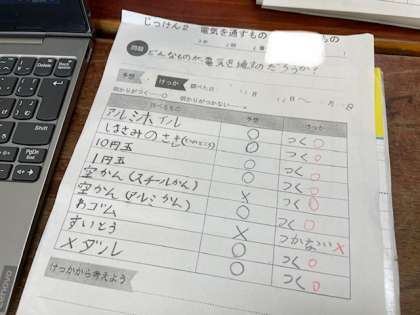 じっけん2 電気を通すもの
問題 どんなものが、電気を通すのだろうか？
予想 けっか
明かりがつく…○ 明かりがつかない…×
調べるもの 予想 けっか
アルミホイル ○ つく○
はさみのさき ○ つく○
10円玉 ○ つく○
1円玉 ○ つく○
空かん(スチールかん) × つく○
空かん(アルミかん) ○ つく○
わゴム × つかない×
すいとう ○ つく○
メダル ○ つく○
けっかから考えよう
Lenovo